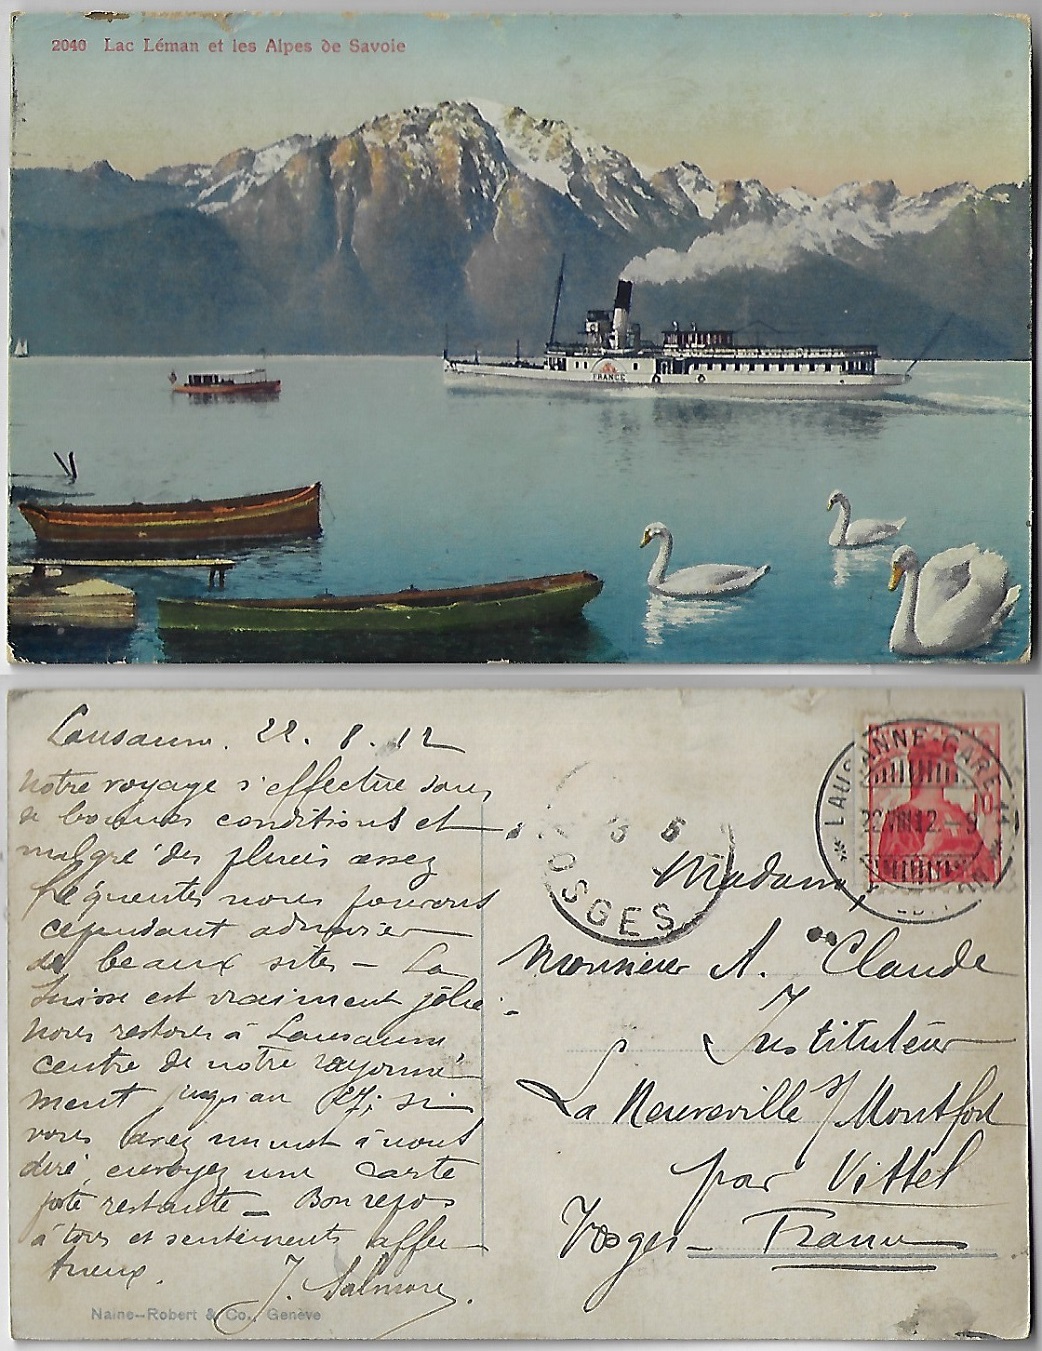 2040 Lac Léman et les Alpes de Savoie
FRANCE
Lausanne. 22. 8. 12
Notre voyage s'effectue dans
de bonnes conditions et
malgré des pluies assez
fréquentes nous pouvons
cependant admirer
de beaux sites — La
Suisse est vraiment jolie.
Nous restons à Lausanne
centre de notre rayonne-
ment jusqu'au 27; si
vous avez un mot à nous
dire, envoyez une carte
poste restante — Bon repos
à tous et sentiments affec-
tueux.
J. Salmon.
Naine-Robert & Co., Genève
LAUSANNE-GARE
22.VIII.12.-9
10
OSGES
Madame,
Monsieur A. Claude
Instituteur
La Neuveville s/ Montfort
par Vittel
Vosges — France